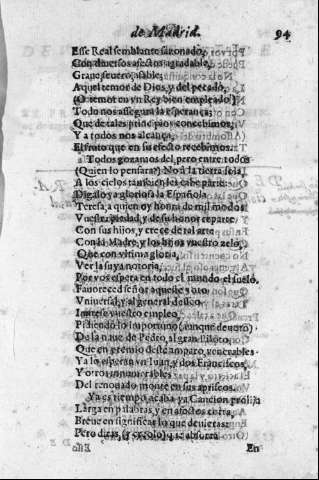 de Madrid.
94
Esse Real semblante sazonado,
Con diuersos afectos agradable,
Graue, seuero, afable,
Aquel temor de Dios, y del pecado,
(O temor en vn Rey bien empleado!)
Todo nos assegura la esperança;
Que de tales principios concebimos,
Y a todos nos alcança,
El fruto que en su efecto recebimos.
Todos gozamos del, pero entre todos
(Quien lo pensara?) No a la tierra sola,
A los cielos tambien les cabe parte:
Digalo ya gloriosa la Española
Teresa, a quien oy honra de mil modos
Vuestra piedad, y de su honor reparte
Con sus hijos, y crece de tal arte
Con la Madre, y los hijos vuestro zelo,
Que con vltima gloria,
Ver la suya notoria,
Por vos espera en todo el mundo el suelo.
Fauoreced señor aqueste voto
Vniuersal, y al general desseo
Interese vuestro empleo,
Pidiendo lo importuno (aunque deuoto)
De la naue de Pedro al gran Piloto,
Que en premio deste amparo, venerables
Ya lo esperan vn Juan, y dos Franciscos,
Y otros innumerables
Del renouado monte en sus apriscos.
Ya es tiempo acaba ya Cancion prolija
Larga en palabras, y en afectos corta,
Breue en significar lo que deuieras:
Pero diras, (y creolo) que absorta
En